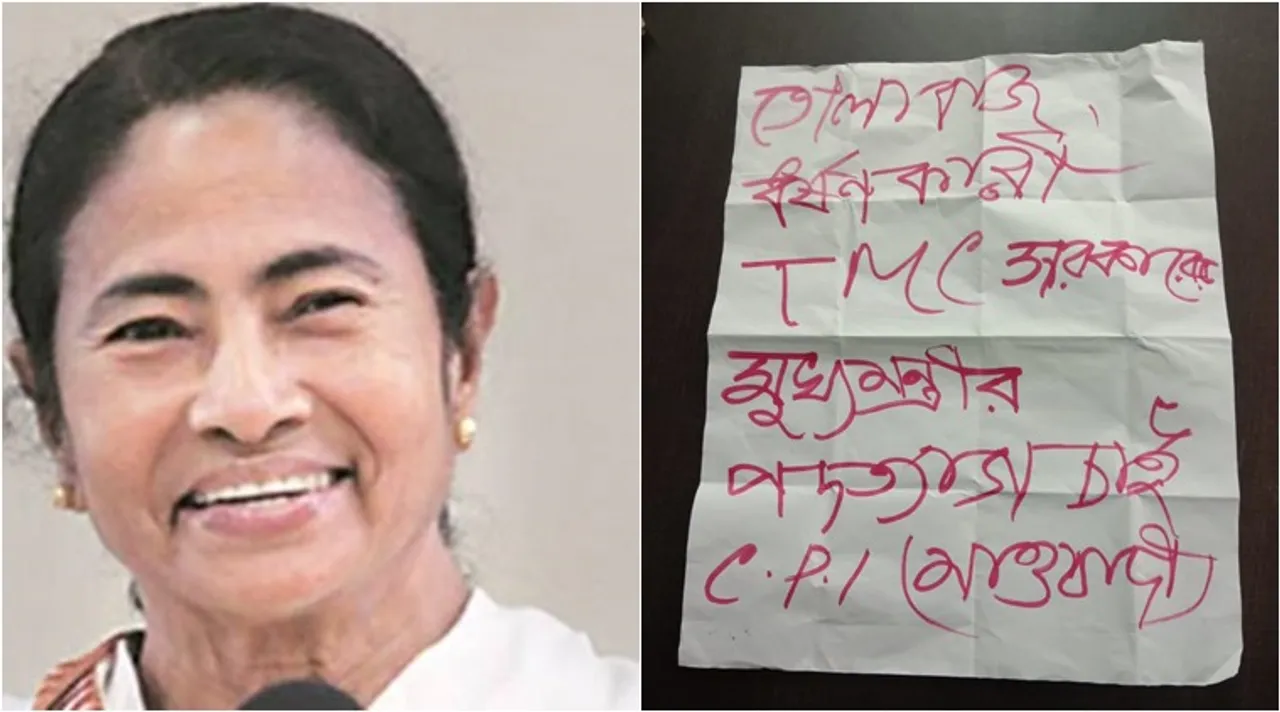 তোলাবাজ,
ধর্ষণকারী
TMC সরকারের
মুখ্যমন্ত্রীর
পদত্যাগ চাই
C.P.I (মাওবাদী)